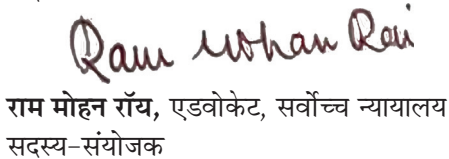 Ram Mohan Rai
राम मोहन रॉय, एडवोकेट, सर्वोच्च न्यायालय
सदस्य-संयोजक